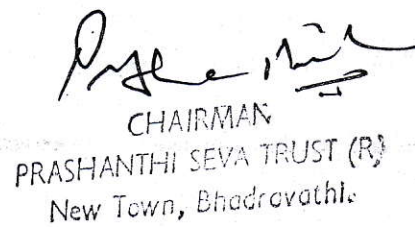 CHAIRMAN
PRASHANTHI SEVA TRUST (R)
New Town, Bhadravathi.